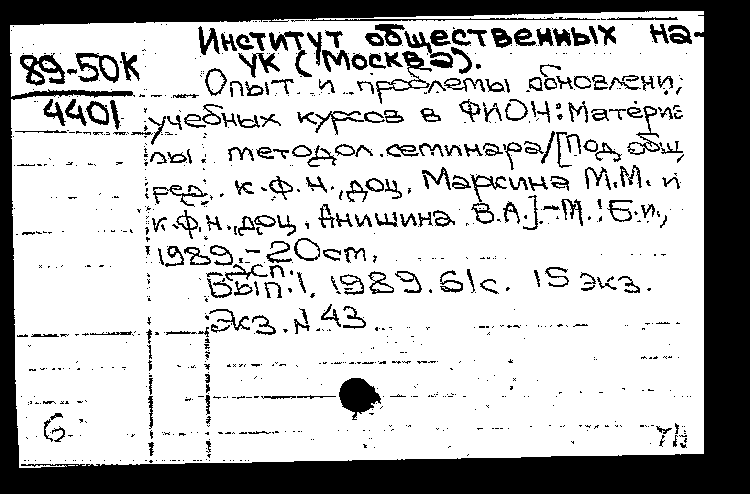 Институт общественных на-
89-50К
ук (Москва).
Опыт и проблемы обновлени,
4401
учебных курсов в ФИОН: Материа
лы. методол. семинара/[Под общ
ред. к.ф.н., доц. Марсина М.М. и
к.ф.н., доц. Анишина В.А.].-М.: Б.и.,
1989.-20см.
Вып.1. 1989. 61с. 15 экз.
Экз. N 43.
6